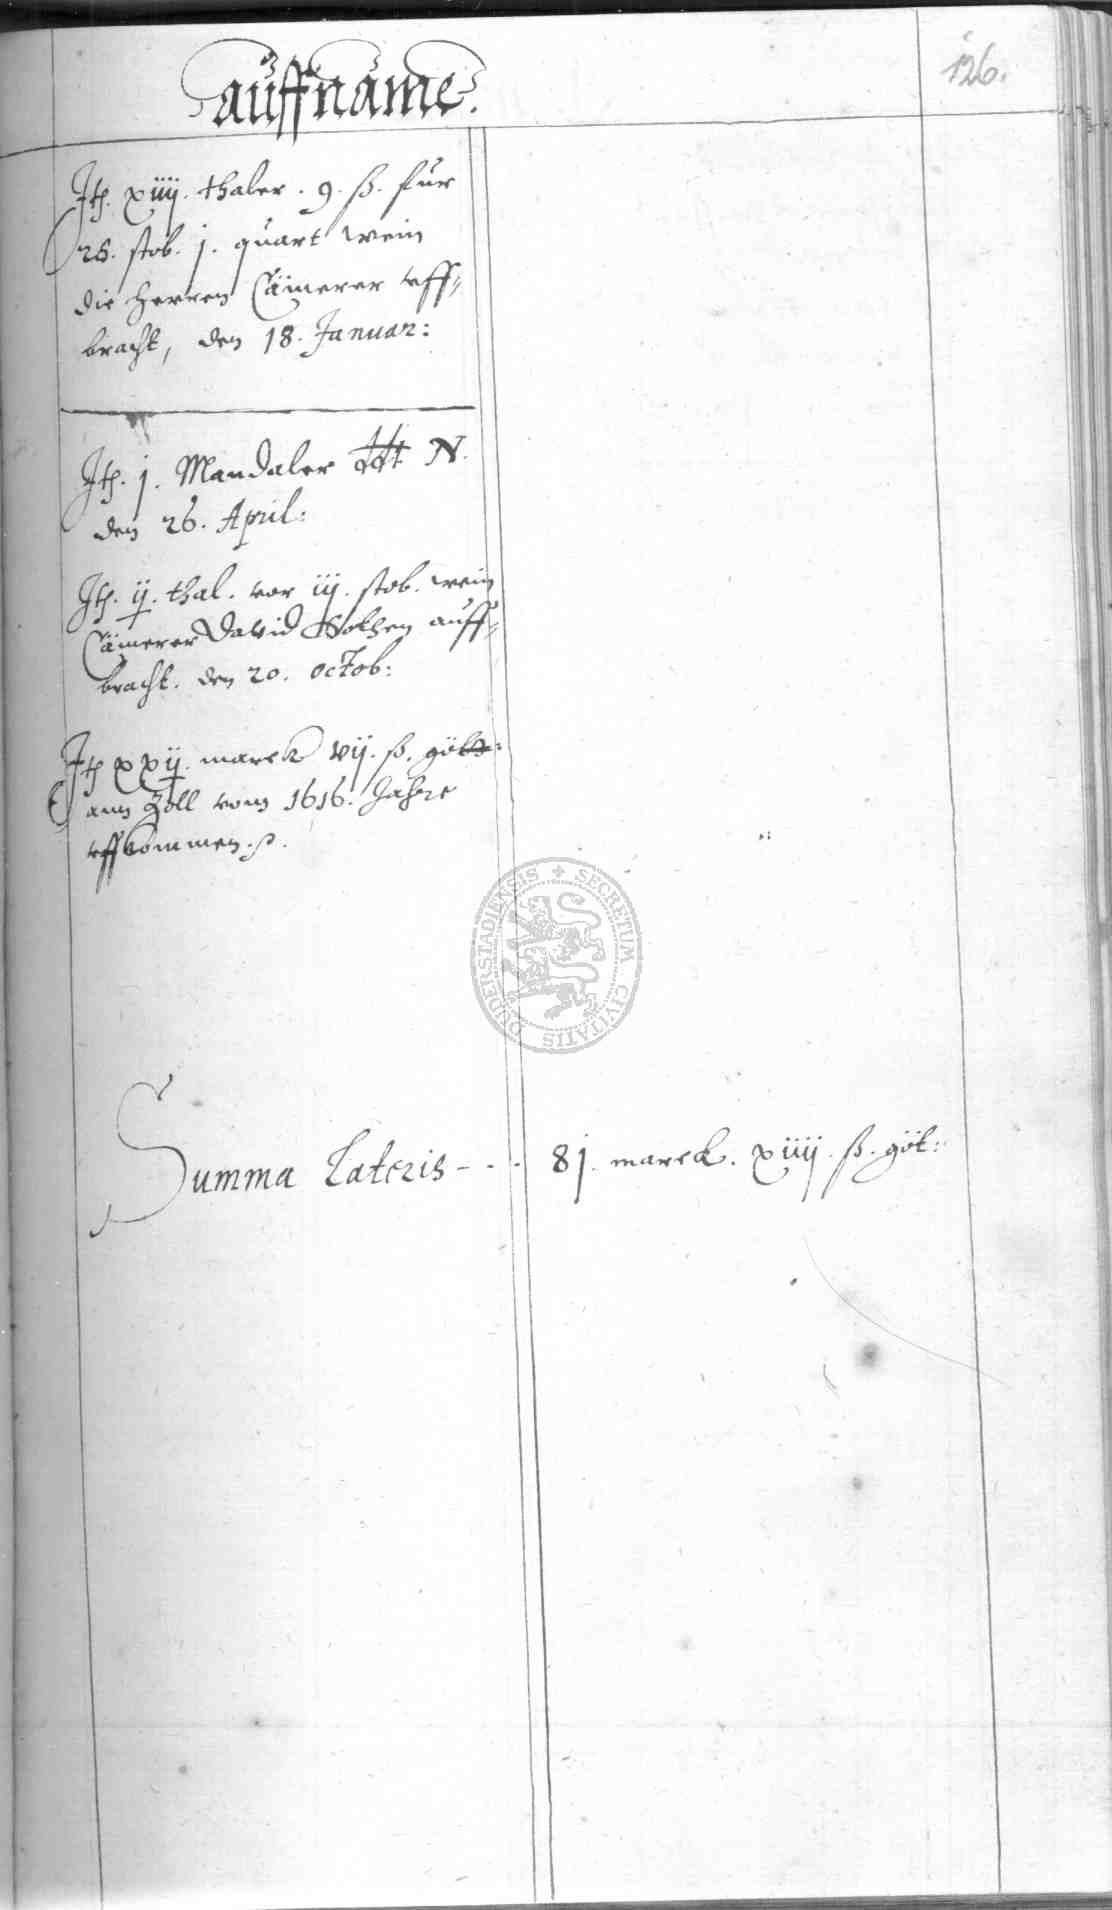 auffname.
126.
Jt. xiiij. thaler. 9. ß. fur
28. stob. j. quart wein
die Herren Cämerer vff-
bracht, den 18. Januar:
Jt. j. Mandaler N.
den 26. April:
Jt. ij. thal. vor iij. stob. wein
Cämerer David auff-
bracht. den 20. octob:
Jt xxij. marck vij. ß. göt:
ann Zoll vom 1616. Jahre
vffkommen.
SECRETUM CIVITATIS DUDERSTADIENSIS
Summa Lateris - - - 8j. marck. xiiij. ß. göt: